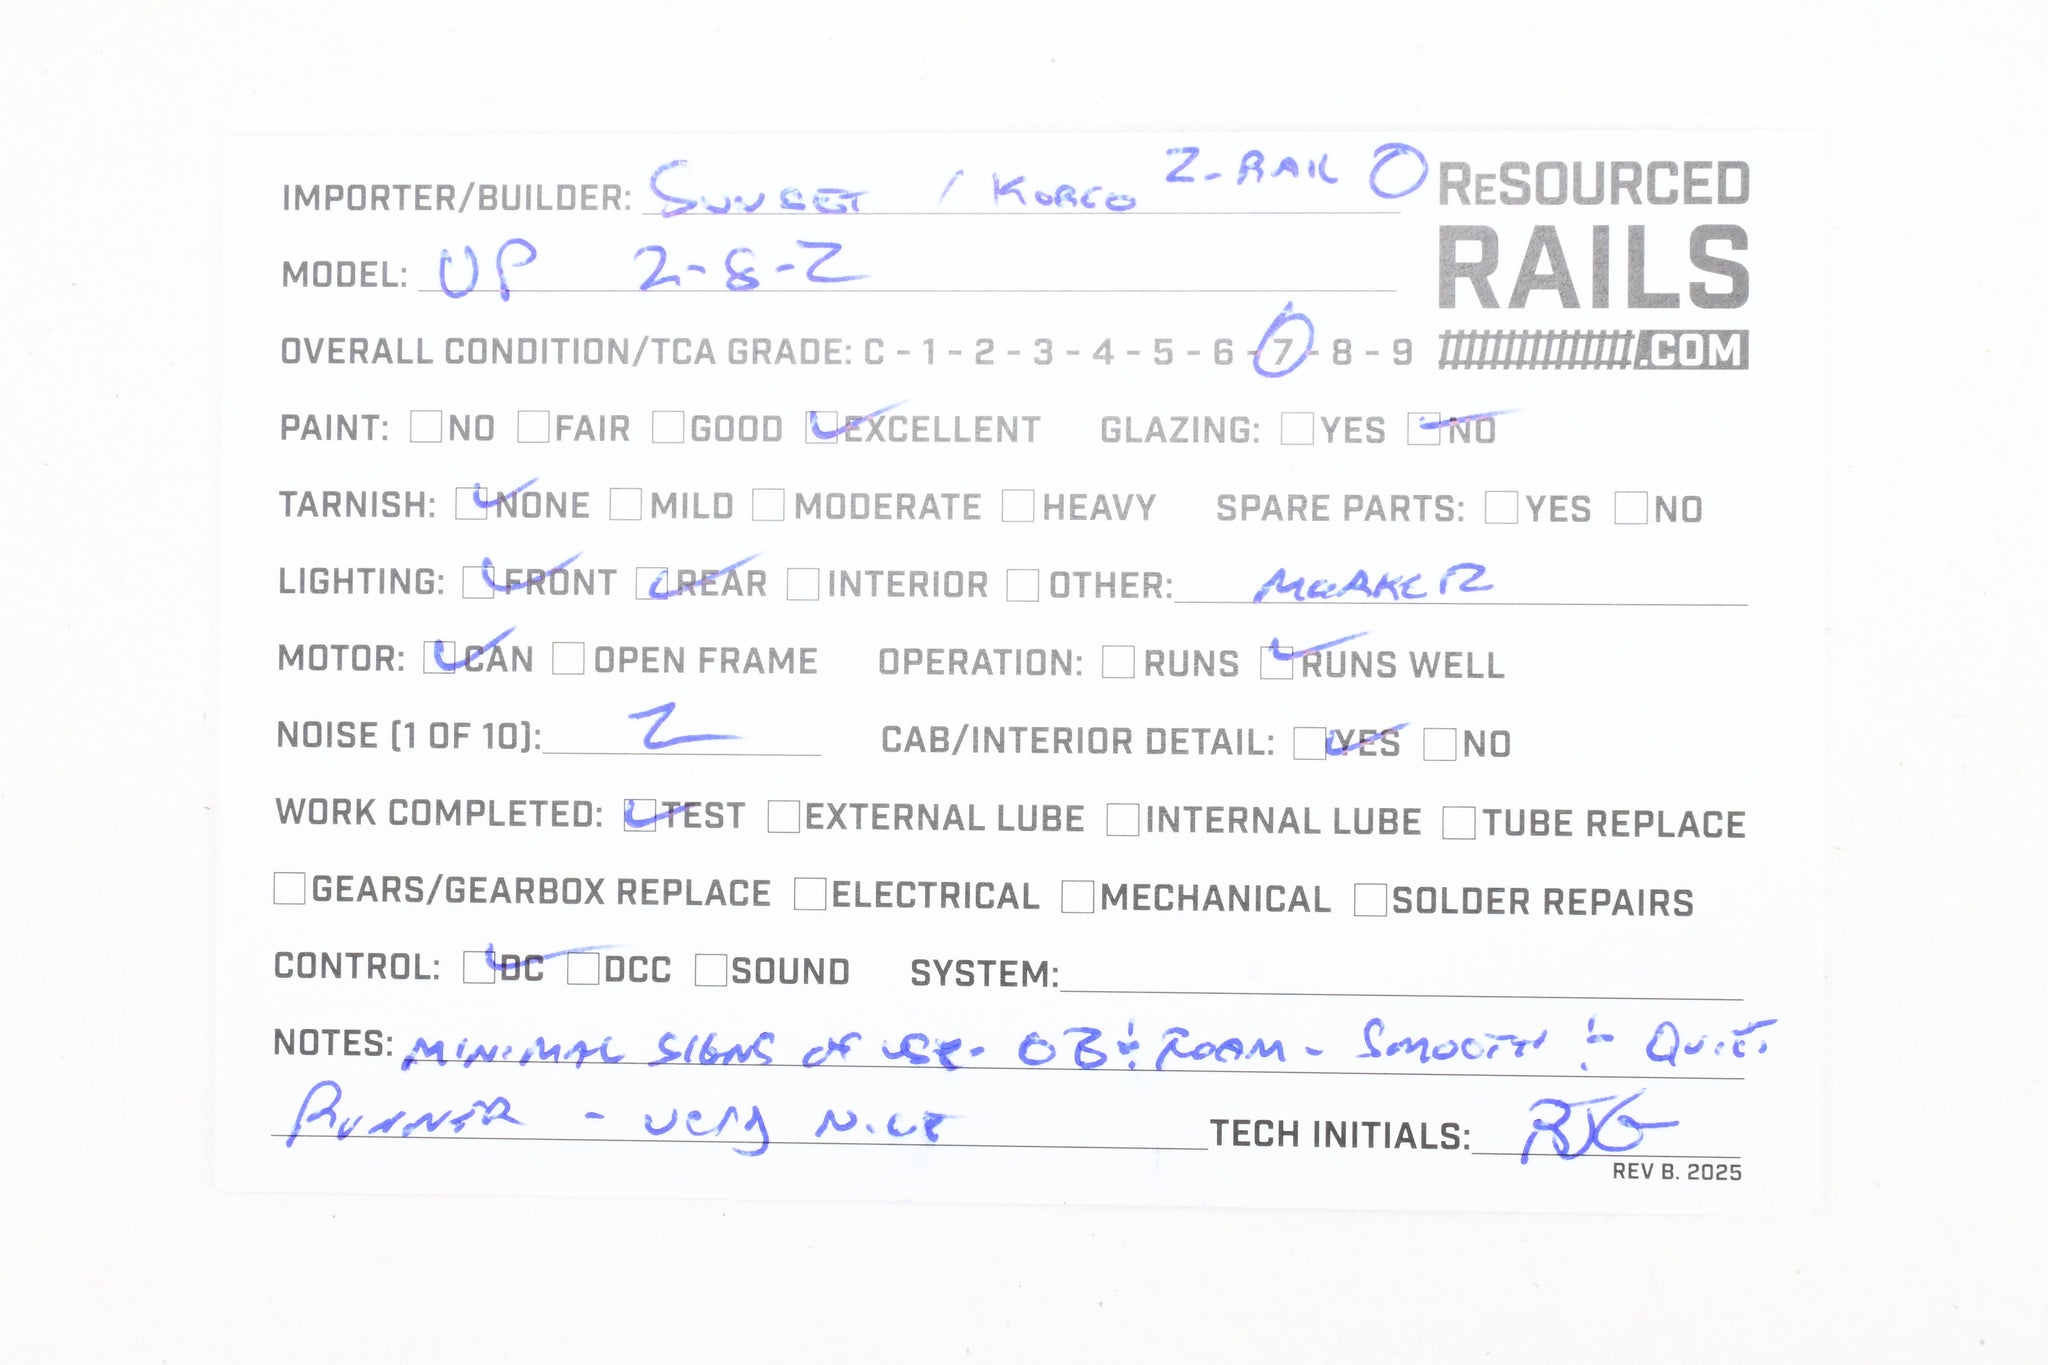 IMPORTER/BUILDER: SUNSET / KOREA 2-RAIL O
ReSOURCED
RAILS
.COM
MODEL: UP 2-8-2
OVERALL CONDITION/TCA GRADE: C - 1 - 2 - 3 - 4 - 5 - 6 - 7 - 8 - 9
PAINT: NO FAIR GOOD EXCELLENT GLAZING: YES NO
TARNISH: NONE MILD MODERATE HEAVY SPARE PARTS: YES NO
LIGHTING: FRONT REAR INTERIOR OTHER: MARKER
MOTOR: CAN OPEN FRAME OPERATION: RUNS RUNS WELL
NOISE (1 OF 10): 2 CAB/INTERIOR DETAIL: YES NO
WORK COMPLETED: TEST EXTERNAL LUBE INTERNAL LUBE TUBE REPLACE
GEARS/GEARBOX REPLACE ELECTRICAL MECHANICAL SOLDER REPAIRS
CONTROL: DC DCC SOUND SYSTEM:
NOTES: MINIMAL SIGNS OF USE - OB & FOAM - SMOOTH & QUIET
RUNNER - VERY NICE TECH INITIALS:
REV B. 2025